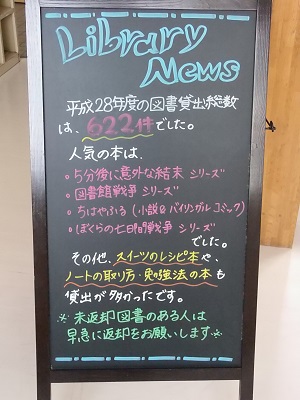 Library
News
平成28年度の図書貸出総数
は、622件でした。
人気の本は、
・5分後に意外な結末 シリーズ
・図書館戦争 シリーズ
・ちはやふる(小説&バイリンガルコミック)
・ぼくらの七日間戦争 シリーズ
でした。
その他、スイーツのレシピ本や、
ノートの取り方・勉強法の本も
貸出が多かったです。
※未返却図書のある人は
早急に返却をお願いします※